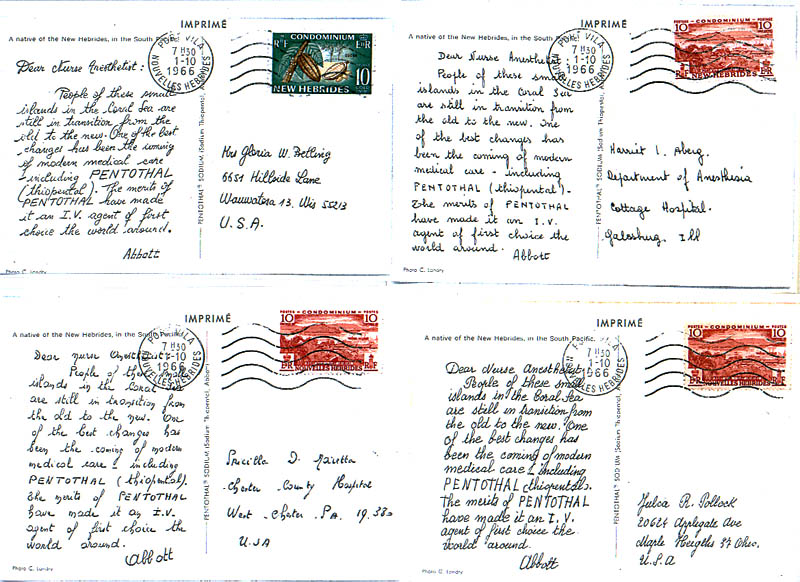 IMPRIMÉ
A native of the New Hebrides, in the South Pacific.
PORT VILA
7 H30
1-10
1966
NOUVELLES HEBRIDES
CONDOMINIUM
RF
E R
10
NEW HEBRIDES
Dear Nurse Anesthetist.
People of these small
islands in the Coral Sea are
still in transition from the
old to the new. One of the best
changes has been the coming
of modern medical care
- including PENTOTHAL
(thiopental). The merits of
PENTOTHAL have made
it an I.V. agent of first
choice the world around.
Abbott
PENTOTHAL® SODIUM (Sodium Thiopental, Abbott)
Mrs Gloria W. Betling
6651 Hillside Lane
Wauwatosa 13, Wis 55213
U.S.A.
Photo C. Landry
IMPRIMÉ
A native of the New Hebrides, in the South Pacific.
PORT VILA
7 H30
1-10
1966
NOUVELLES HEBRIDES
POSTES CONDOMINIUM POSTAGE
10 10
RF NEW HEBRIDES E R
Dear Nurse Anesthetist
People of these small
islands in the Coral Sea
are still in transition from
the old to the new. One
of the best changes has
been the coming of modern
medical care - including
PENTOTHAL (thiopental).
The merits of PENTOTHAL
have made it an I.V.
agent of first choice the
world around.
Abbott
PENTOTHAL® SODIUM (Sodium Thiopental, Abbott)
Harriet I. Aberg.
Department of Anesthesia
Cottage Hospital.
Galesburg, Ill
Photo C. Landry
IMPRIMÉ
A native of the New Hebrides, in the South Pacific.
PORT VILA
7 H30
1-10
1966
NOUVELLES HEBRIDES
CONDOMINIUM
10 10
E R NOUVELLES HEBRIDES R F
Dear Nurse Anesthetist
People of these
islands in the Coral Sea
are still in transition from
the old to the new. One
of the best changes has
been the coming of modern
medical care - including
PENTOTHAL (thiopental).
The merits of PENTOTHAL
have made it an I.V.
agent of first choice the
world around.
Abbott
PENTOTHAL® SODIUM (Sodium Thiopental, Abbott)
Priscilla D.
Chester County Hospital
West-Chester, PA. 19.380
USA
Photo C. Landry
IMPRIMÉ
A native of the New Hebrides, in the South Pacific.
7 H30
1-10
966
HEBRIDES
CONDOMINIUM
10 10
E R NOUVELLES HEBRIDES R F
Dear Nurse Anesthetist
People of these small
islands in the Coral Sea
are still in transition from
the old to the new. One
of the best changes has
been the coming of modern
medical care - including
PENTOTHAL (thiopental).
The merits of PENTOTHAL
have made it an I.V.
agent of first choice the
world around.
Abbott
PENTOTHAL® SODIUM (Sodium Thiopental, Abbott)
Julia R. Pollock
20624 Applegate Ave
Maple Heights 37 Ohio.
U.S.A
Photo C. Landry